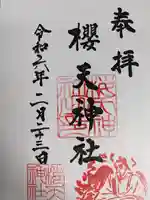 奉拝
櫻天神社
令和六年二月二十三日